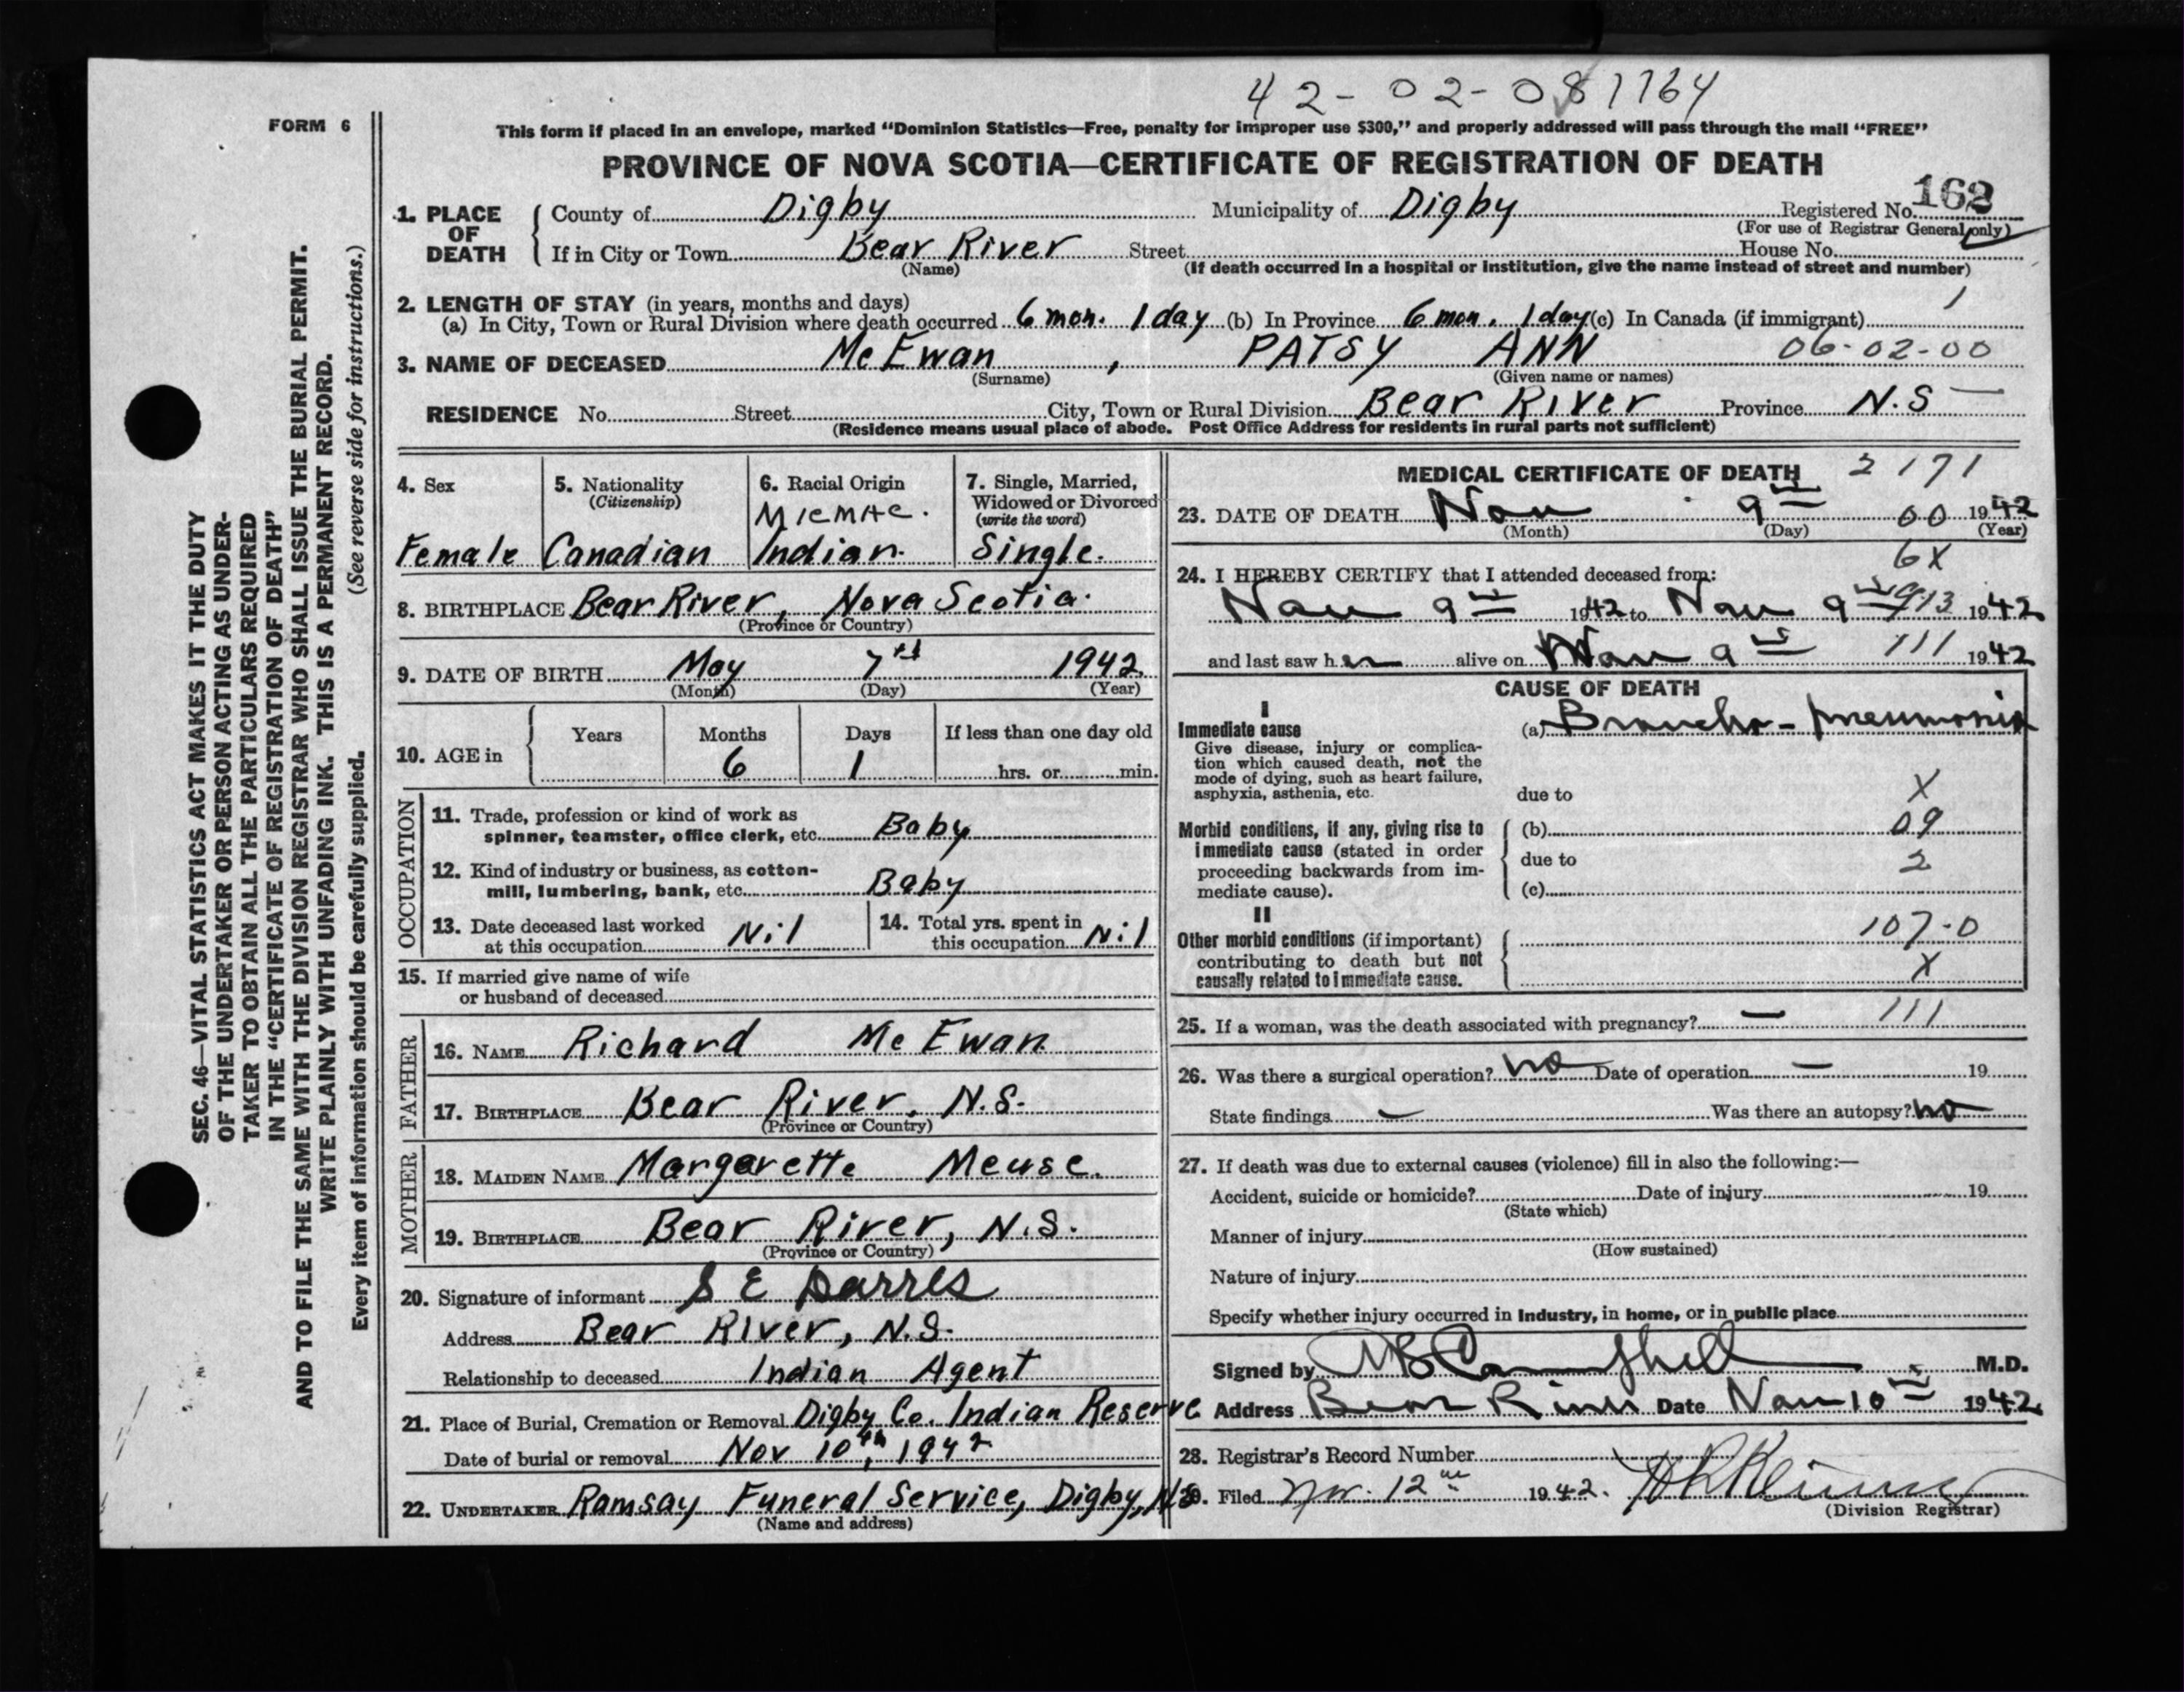 42-02-081764
FORM 6
This form if placed in an envelope, marked "Dominion Statistics—Free, penalty for improper use $300," and properly addressed will pass through the mail "FREE"
PROVINCE OF NOVA SCOTIA—CERTIFICATE OF REGISTRATION OF DEATH
1. PLACE OF DEATH County of Digby Municipality of Digby Registered No. 162
(For use of Registrar General only)
If in City or Town Bear River Street House No.
(Name) (If death occurred in a hospital or institution, give the name instead of street and number)
2. LENGTH OF STAY (in years, months and days) 1
(a) In City, Town or Rural Division where death occurred 6 mon. 1 day (b) In Province 6 mon. 1 day (c) In Canada (if immigrant)
3. NAME OF DECEASED Mc Ewan, PATSY ANN 06-02-00
(Surname) (Given name or names)
RESIDENCE No. Street City, Town or Rural Division Bear River Province N.S
(Residence means usual place of abode. Post Office Address for residents in rural parts not sufficient)
4. Sex
Female
5. Nationality
(Citizenship)
Canadian
6. Racial Origin
Micmac.
Indian.
7. Single, Married,
Widowed or Divorced
(write the word)
Single.
8. BIRTHPLACE Bear River, Nova Scotia.
(Province or Country)
9. DATE OF BIRTH May 7th 1942.
(Month) (Day) (Year)
10. AGE in Years Months Days If less than one day old
6 1 hrs. or min.
OCCUPATION
11. Trade, profession or kind of work as
spinner, teamster, office clerk, etc. Baby
12. Kind of industry or business, as cotton-
mill, lumbering, bank, etc. Baby
13. Date deceased last worked
at this occupation Nil
14. Total yrs. spent in
this occupation Nil
15. If married give name of wife
or husband of deceased
FATHER
16. NAME Richard Mc Ewan
17. BIRTHPLACE Bear River, N.S.
(Province or Country)
MOTHER
18. MAIDEN NAME Margarette Meuse.
19. BIRTHPLACE Bear River, N.S.
(Province or Country)
20. Signature of informant S E Darres
Address Bear River, N.S.
Relationship to deceased Indian Agent
21. Place of Burial, Cremation or Removal Digby Co. Indian Reserve
Date of burial or removal Nov 10th, 1942
22. UNDERTAKER Ramsay Funeral Service, Digby, N.S.
(Name and address)
MEDICAL CERTIFICATE OF DEATH 2171
23. DATE OF DEATH Nov 9th 00 1942
(Month) (Day) (Year)
6X
24. I HEREBY CERTIFY that I attended deceased from:
Nov 9th 1942 to Nov 9th 913 1942
and last saw her alive on Nov 9th 111 1942
CAUSE OF DEATH
I
Immediate cause
Give disease, injury or complica-
tion which caused death, not the
mode of dying, such as heart failure,
asphyxia, asthenia, etc.
(a) Broncho-pneumonia
due to X
Morbid conditions, if any, giving rise to
immediate cause (stated in order
proceeding backwards from im-
mediate cause).
(b) 09
due to 2
(c)
II
Other morbid conditions (if important)
contributing to death but not
causally related to immediate cause.
107-0
X
25. If a woman, was the death associated with pregnancy? — 111
26. Was there a surgical operation? no Date of operation — 19
State findings — Was there an autopsy? no
27. If death was due to external causes (violence) fill in also the following:—
Accident, suicide or homicide? Date of injury 19
(State which)
Manner of injury
(How sustained)
Nature of injury
Specify whether injury occurred in Industry, in home, or in public place
Signed by Campbell M.D.
Address Bear River Date Nov 10th 1942
28. Registrar's Record Number
29. Filed Nov. 12th 1942.
(Division Registrar)
SEC. 46—VITAL STATISTICS ACT MAKES IT THE DUTY
OF THE UNDERTAKER OR PERSON ACTING AS UNDER-
TAKER TO OBTAIN ALL THE PARTICULARS REQUIRED
IN THE "CERTIFICATE OF REGISTRATION OF DEATH"
AND TO FILE THE SAME WITH THE DIVISION REGISTRAR WHO SHALL ISSUE THE BURIAL PERMIT.
WRITE PLAINLY WITH UNFADING INK. THIS IS A PERMANENT RECORD.
Every item of information should be carefully supplied. (See reverse side for instructions.)